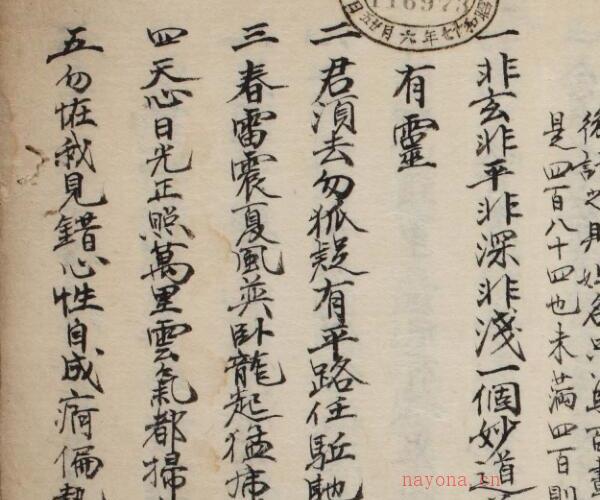 是四百八十四也未滿四百則
一非玄非平非深非淺一個妙道
有靈
二君湏去勿狐疑有平路任駈馳
三春雷震夏風巽臥龍起猛虎
四天心日光正照萬里雲氣都掃
五勿恠我見錯心性自成痾偏執
116973
和十七年六月廿五日
nayona.cn